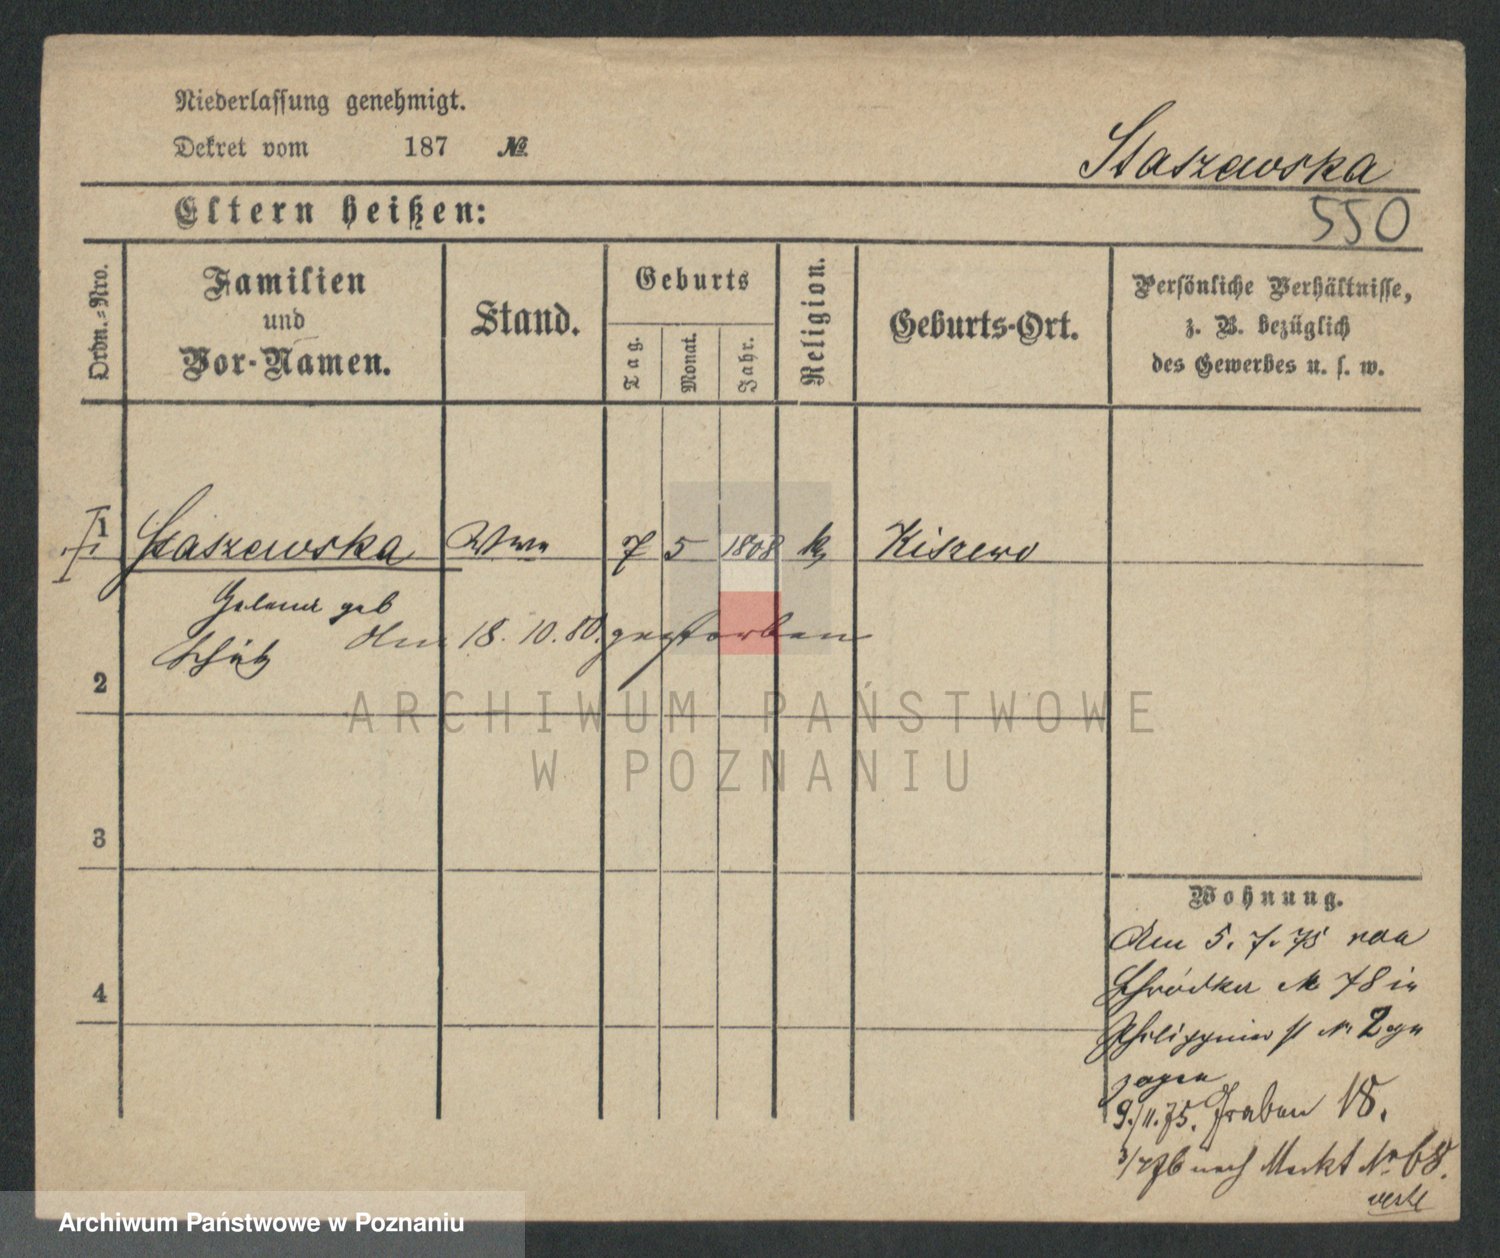 Niederlassung genehmigt.
Dekret vom 187 №
Staszewska
550
Eltern heißen:
Ordn.-Nro.
Familien
und
Vor-Namen.
Stand.
Geburts
Tag.
Monat.
Jahr.
Religion.
Geburts-Ort.
Persönliche Verhältnisse,
z. B. bezüglich
des Gewerbes u. s. w.
1 Staszewska Wwe 7 5 1808 k Kiszewo
geb
den 18. 10. 80. gestorben
2
ARCHIWUM PAŃSTWOWE
W POZNANIU
3
4
Wohnung.
Am 5. 7. 75 von
Schrodka № 78 in
Philippinen st № 2 ge
zogen
9./11.75. Graben 18.
3/4 76 nach Markt № 68.
Archiwum Państwowe w Poznaniu